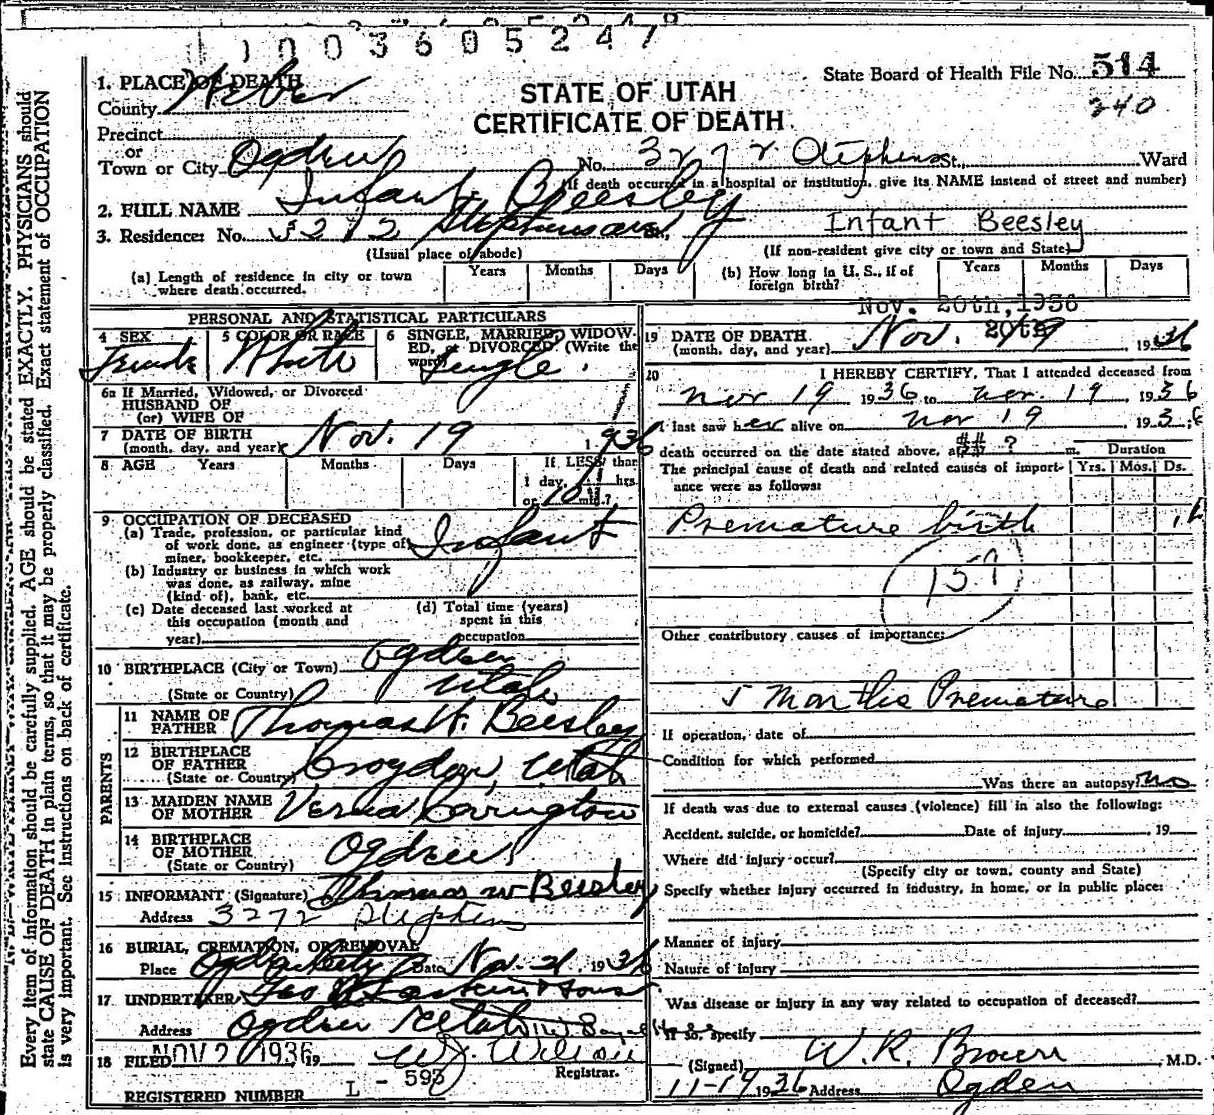 1003605247
State Board of Health File No. 514
240
STATE OF UTAH
CERTIFICATE OF DEATH
1. PLACE OF DEATH
County Weber
Precinct
or
Town or City Ogden No. 3272 Stephens St. Ward
(If death occurred in a hospital or institution, give its NAME instead of street and number)
2. FULL NAME Infant Beesley
Infant Beesley
3. Residence: No. 3272 St.
(Usual place of abode) (If non-resident give city or town and State)
(a) Length of residence in city or town where death occurred. Years Months Days (b) How long in U. S., if of foreign birth? Years Months Days
PERSONAL AND STATISTICAL PARTICULARS
4 SEX Female
5 COLOR OR RACE White
6 SINGLE, MARRIED, WIDOWED, or DIVORCED (Write the word) Single
6a If Married, Widowed, or Divorced
HUSBAND OF
(or) WIFE OF
7 DATE OF BIRTH
(month, day, and year) Nov. 19 1936
8 AGE Years Months Days If LESS than
1 day, hrs.
or 10 min.?
9 OCCUPATION OF DECEASED
(a) Trade, profession, or particular kind
of work done, as engineer (type of)
miner, bookkeeper, etc. Infant
(b) Industry or business in which work
was done, as railway, mine
(kind of), bank, etc.
(c) Date deceased last worked at
this occupation (month and
year)
(d) Total time (years)
spent in this
occupation
10 BIRTHPLACE (City or Town) Ogden
(State or Country) Utah
PARENTS
11 NAME OF
FATHER Thomas W. Beesley
12 BIRTHPLACE
OF FATHER
(State or Country) Croydon, Utah
13 MAIDEN NAME
OF MOTHER Verna Carrington
14 BIRTHPLACE
OF MOTHER
(State or Country) Ogden
15 INFORMANT (Signature) Thomas W Beesley
Address 3272 Stephens
16 BURIAL, CREMATION, OR REMOVAL
Place Ogden City Date Nov. 21, 1936
17 UNDERTAKER Geo & Sons
Address Ogden Utah
18 FILED NOV 2 1936 19
Registrar.
REGISTERED NUMBER L - 593
Nov. 20th, 1936
19 DATE OF DEATH
(month, day, and year) Nov. 1936
20 I HEREBY CERTIFY, That I attended deceased from
Nov 19 1936 to Nov. 19, 1936
I last saw her alive on Nov 19 1936
death occurred on the date stated above, at ## ? m.
Duration
Yrs. Mos. Ds.
The principal cause of death and related causes of importance were as follows:
Premature birth
159
Other contributory causes of importance:
5 Months Premature
If operation, date of
Condition for which performed
Was there an autopsy? no
If death was due to external causes (violence) fill in also the following:
Accident, suicide, or homicide? Date of injury 19
Where did injury occur?
(Specify city or town, county and State)
Specify whether injury occurred in industry, in home, or in public place:
Manner of injury
Nature of injury
Was disease or injury in any way related to occupation of deceased?
If so, specify
(Signed) W. R. Brown M.D.
11-19 1936 Address Ogden
Every item of information should be carefully supplied. AGE should be stated EXACTLY. PHYSICIANS should
state CAUSE OF DEATH in plain terms, so that it may be properly classified. Exact statement of OCCUPATION
is very important. See instructions on back of certificate.